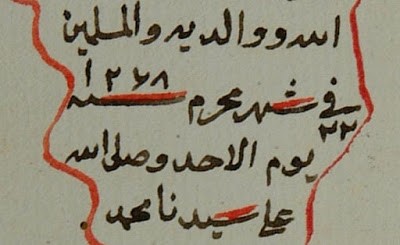 الله ووالديه والمسلمين
في شهر محرم سنة ١٢٦٨
٢٢ يوم الاحد وصلى الله
على سيدنا محمد .